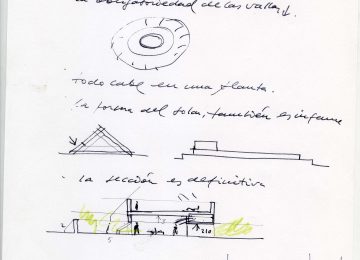 la obligatoriedad de las vallas.
· todo cabe en una planta.
· la forma del solar, también es infame
· la sección es definitiva